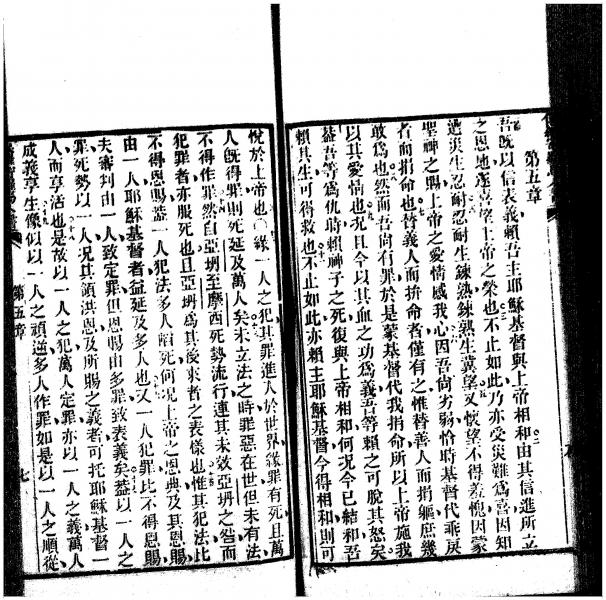 第五章
吾既以信表義賴吾主耶穌基督與上帝相和由其信進所立
之恩地遂喜望上帝之榮也不止如此乃亦受災難爲喜因知
遭災生忍耐忍耐生鍊熟鍊熟生冀望又懷望不得羞愧因蒙
聖神之賜上帝之愛情感我心因吾尙劣弱恰時基督代乖戾
者而捐命也替義人而拚命者僅有之惟替善人而捐軀庶幾
敢爲也然而吾尙有罪於是蒙基督代我捐命所以上帝施我
以其愛情也況且今以其血之功爲義吾等賴之可脫其怒矣
蓋吾等爲仇時賴神子之死復與上帝相和何況今已結和吾
賴其生可得救也不止如此亦賴主耶穌基督今得相和則可
悅於上帝也緣一人之犯其罪進入於世界緣罪有死且萬
人旣得罪則死延及萬人矣未立法之時罪惡在世但未有法
不得作罪然自亞坍至摩西死勢流行連其未效亞坍之咎而
犯罪者亦服死也且亞坍爲其後來者之表樣也惟其犯法比
不得恩賜蓋一人犯法多人陷死何況上帝之恩典及其恩賜
由一人耶穌基督者益延及多人也又一人犯罪比不得恩賜
夫審判由一人致定罪但恩賜由多罪致表義矣蓋以一人之
罪死勢以一人況其領洪恩及所賜之義者可托耶穌基督一
人而享活也是故以一人之犯萬人定罪亦以一人之義萬人
成義享生像似以一人之頑逆多人作罪如是以一人之順從
第五章
七